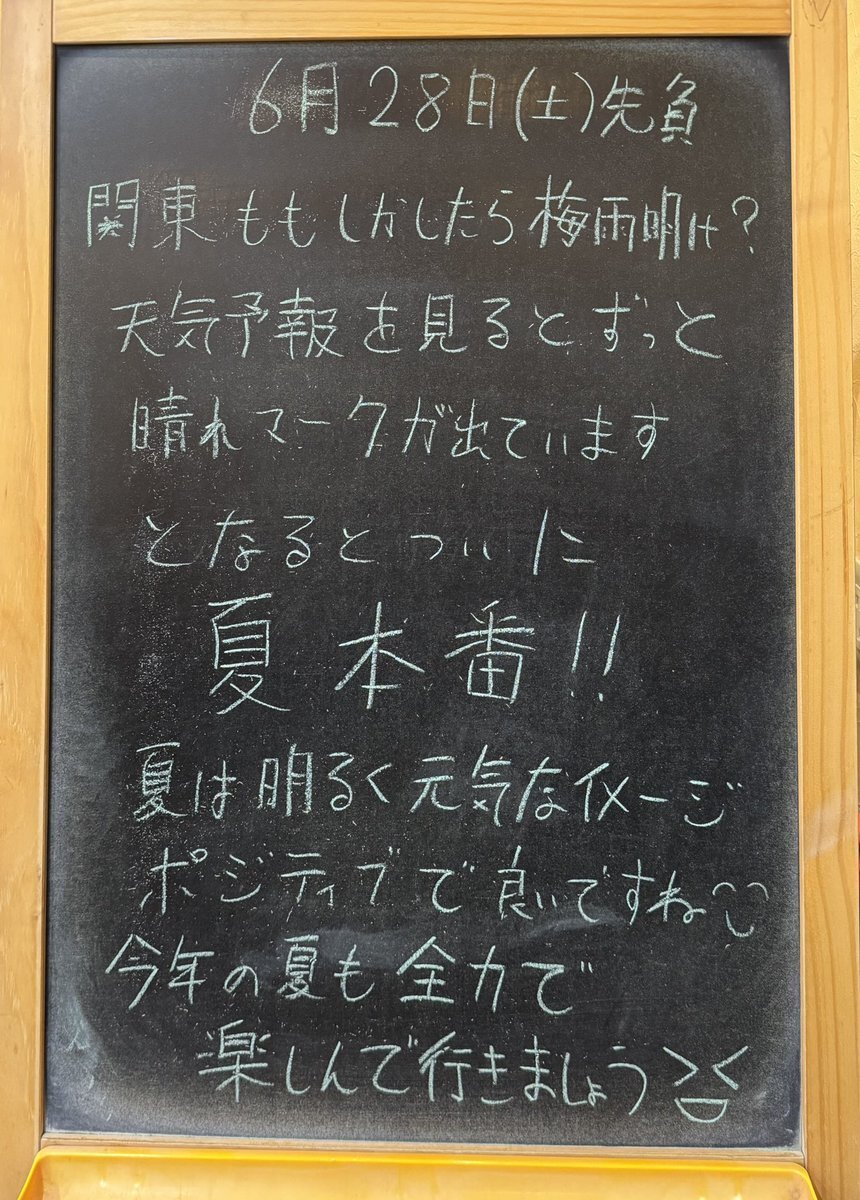 6月28日(土)先負
関東ももしかしたら梅雨明け?
天気予報を見るとずっと
晴れマークが出ています
となるとついに
夏本番!!
夏は明るく元気なイメージ
ポジティブで良いですね
今年の夏も全力で
楽しんで行きましょう